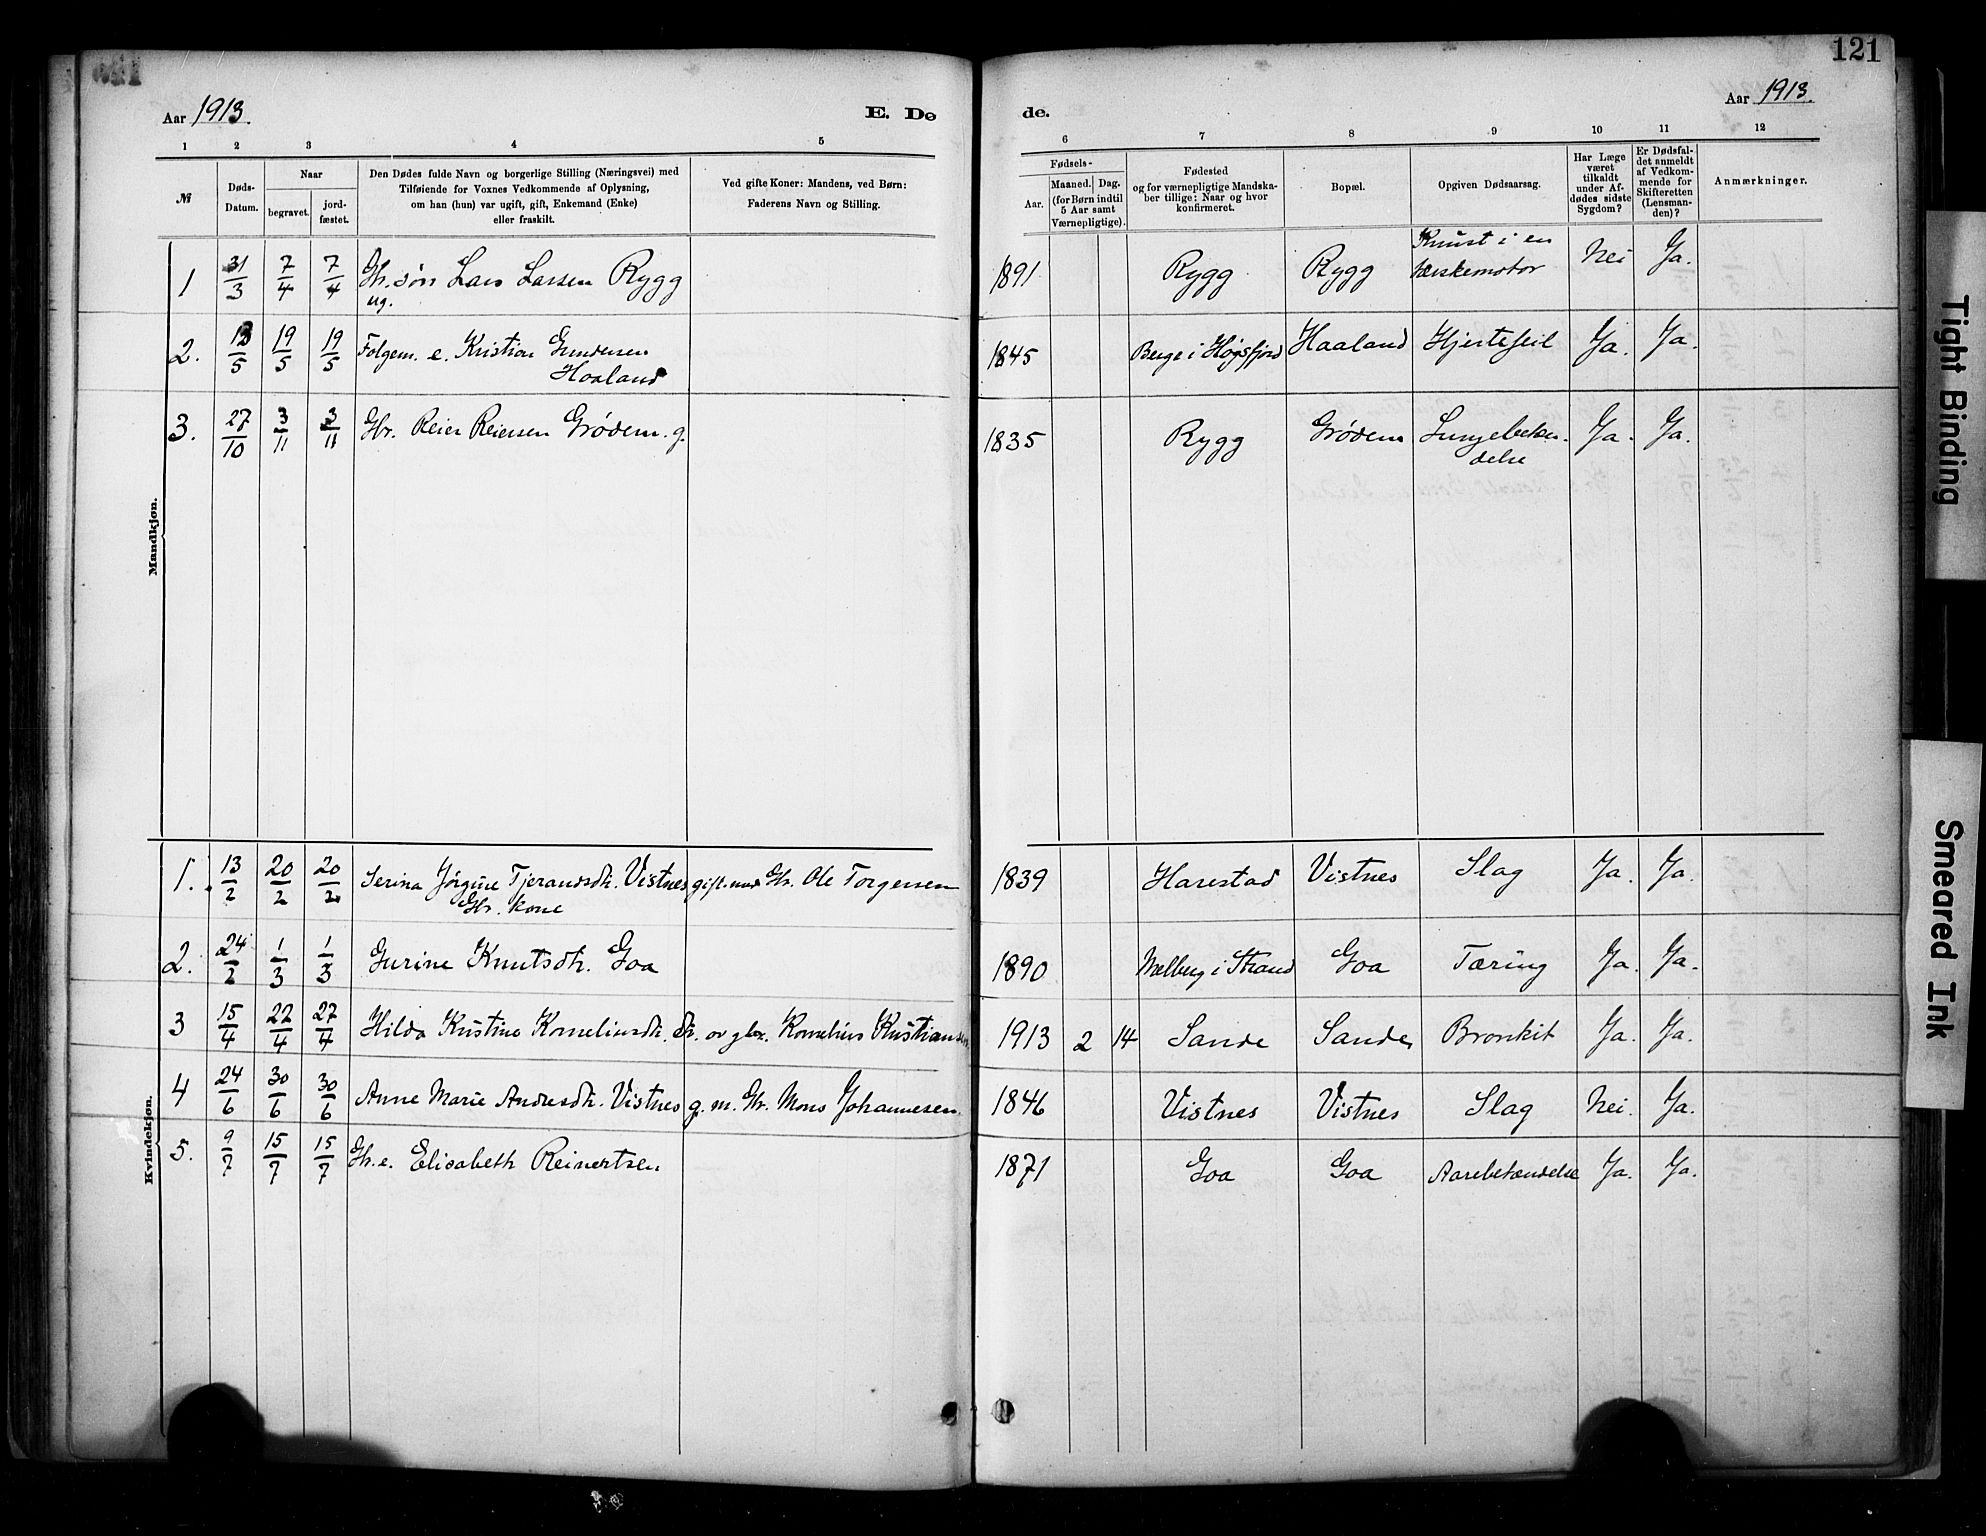 121
Aar 1913.
E. Dø
de.
Aar 1913.
1 2 3 4 5 6 7 8 9 10 11 12
№
Døds-
Datum.
Naar
begravet.
jord-
fæstet.
Den Dødes fulde Navn og borgerlige Stilling (Næringsvei) med
Tilføiende for Voxnes Vedkommende af Oplysning,
om han (hun) var ugift, gift, Enkemand (Enke)
eller fraskilt.
Ved gifte Koner: Mandens, ved Børn:
Faderens Navn og Stilling.
Fødsels-
Aar.
Maaned. Dag.
(for Børn indtil
5 Aar samt
Værnepligtige).
Fødested
og for værnepligtige Mandska-
ber tillige: Naar og hvor
konfirmeret.
Bopæl.
Opgiven Dødsaarsag.
Har Læge
været
tilkaldt
under Af-
dødes sidste
Sygdom?
Er Dødsfal-
det anmeldt
af Vedkom-
mende for
Skifteretten
(Lensman-
den)?
Anmærkninger.
Mandkjøn.
1 31/3 7/4 7/4 Gbr. søn Lars Larsen Rygg 1891 Rygg Rygg Knust i en Nei Ja.
ug. tærskemotor
2. 13/5 19/5 19/5 Folgem. e. Kristian Gundersen 1845 Berge i Høgsfjord Haaland Hjertefeil Ja. Ja.
Haaland
3. 27/10 3/11 3/11 Gbr. Reier Reiersen Grødem. g. 1835 Rygg Grødem Lungebetæn- Ja. Ja.
delse
Kvindekjøn.
1. 13/2 20/2 20/2 Serina Jørgine Tjerandsdtr. Vistnes gift med Gbr. Ole Torgersen 1839 Harestad Vistnes Slag Ja. Ja.
Gbr. kone
2. 24/2 1/3 1/3 Gurine Knutsdtr. Goa 1890 i Strand Goa Tæring Ja. Ja.
3 15/4 22/4 27/4 Hilda Kristine Korneliusdtr. Dtr. av gbr. Kornelius Kristiansen 1913 2 14 Sande Sande Bronkit Ja. Ja.
4 24/6 30/6 30/6 Anne Marie Andresdtr. Vistnes g. m. Gbr. Mons Johannesen. 1846 Vistnes Vistnes Slag Nei. Ja.
5. 9/7 15/7 15/7 Gbr. e. Elisabeth Reinertsen 1871 Goa Goa Aarebetændelse Ja. Ja.
Tight Binding
Smeared Ink